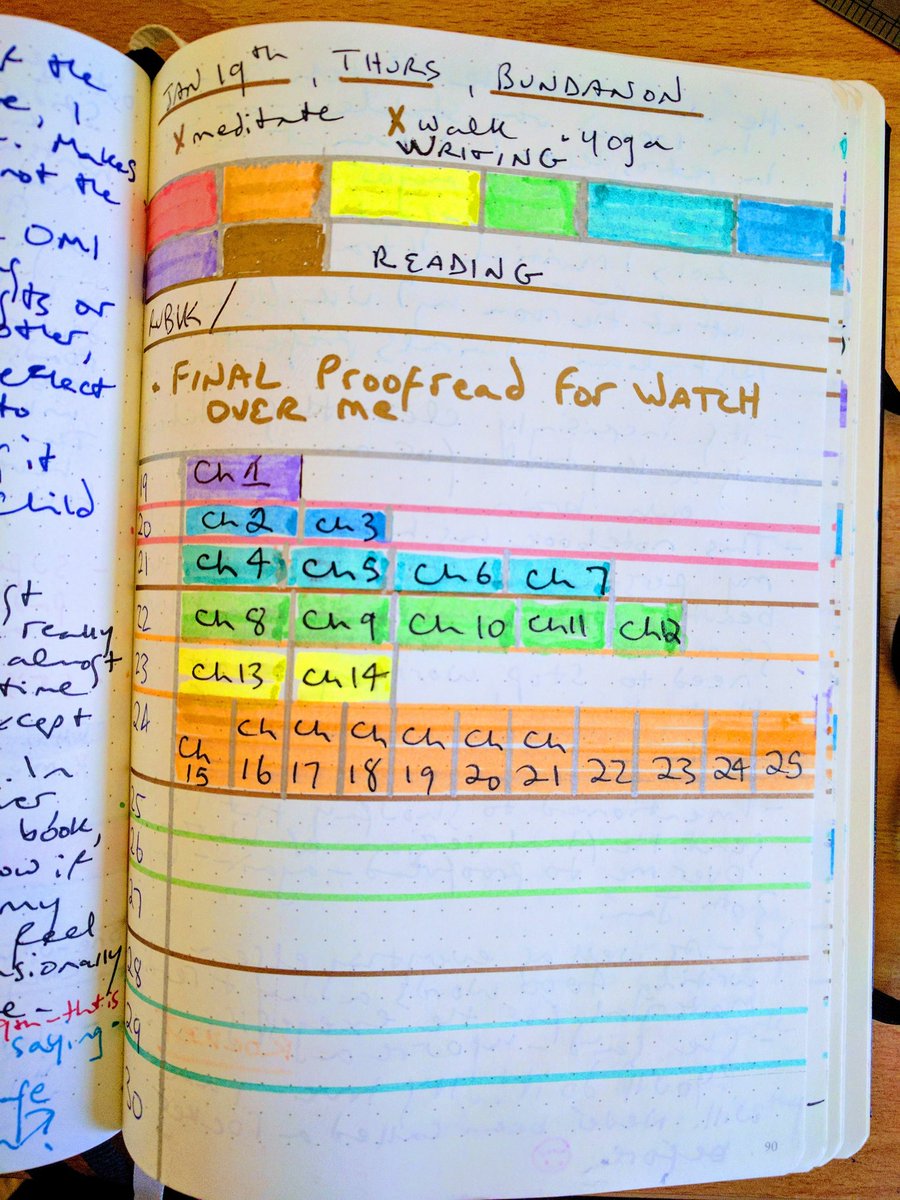 JAN 19th, THURS, BUNDANON
x meditate x walk · yoga
WRITING
READING
/
· FINAL Proofread For WATCH
OVER Me
19 Ch 1
20 Ch 2 Ch 3
21 Ch 4 Ch 5 Ch 6 Ch 7
22 Ch 8 Ch 9 Ch 10 Ch 11 Ch 12
23 Ch 13 Ch 14
24 Ch 15 Ch 16 Ch 17 Ch 18 Ch 19 Ch 20 Ch 21 22 23 24 25
25
26
27
28
29
30
90
of the
, I
. Makes
not the
OMI
or
other,
reflect
to
it
child
really
almost
time
except
. In
book,
if
my
feel
- that is
saying
?